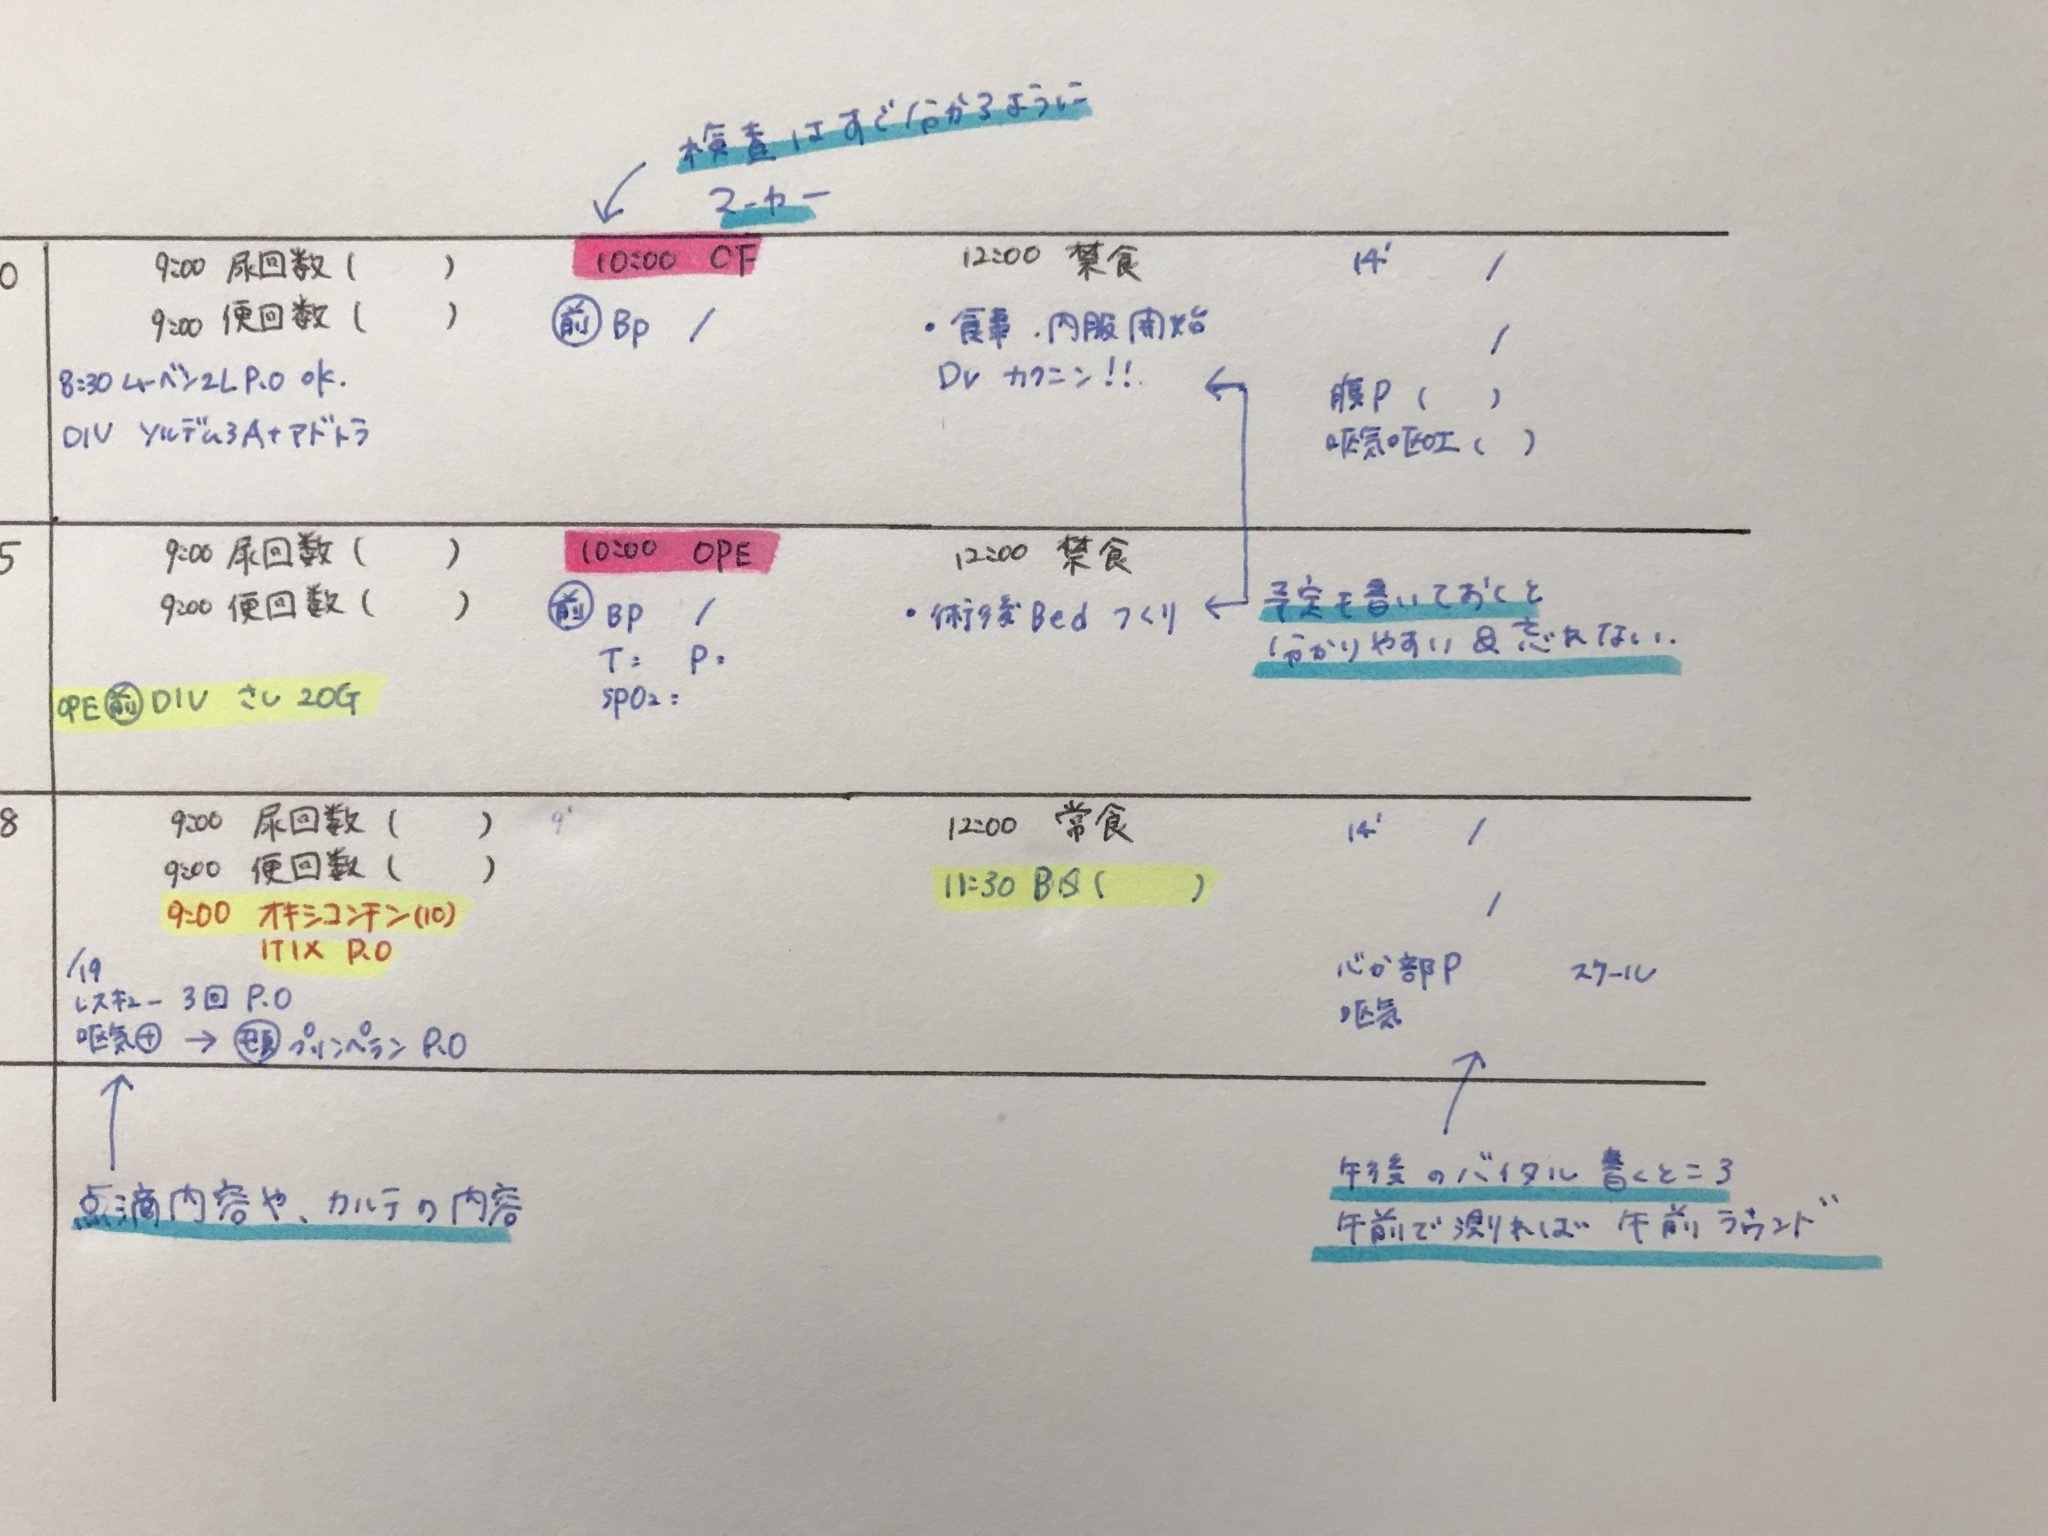 検査はすぐ分かるように
マーカー
0
9:00 尿回数 (　　)
9:00 便回数 (　　)
8:30 ムーベン2L P.O ok.
DIV ソルデム3A+アドトラ
10:00 CF
前 Bp /
12:00 禁食
・食事.内服開始
Dr カクニン!!
14' /
/
腹P (　)
嘔気嘔吐 (　)
5
9:00 尿回数 (　　)
9:00 便回数 (　　)
OPE 前 DIV さし 20G
10:00 OPE
前 BP /
T: P:
SpO2:
12:00 禁食
・術後Bed つくり
予定も書いておくと
分かりやすい & 忘れない.
8
9:00 尿回数 (　　)
9:00 便回数 (　　)
9:00 オキシコンチン(10)
1T1X P.O
/19
レスキュー 3回 P.O
嘔気⊕ → 頓 プリンペラン P.O
9'
12:00 常食
11:30 BS (　　)
14' /
/
心か部P スケール
嘔気
点滴内容や、カルテの内容
午後のバイタル書くところ
午前で測れば 午前ラウンド